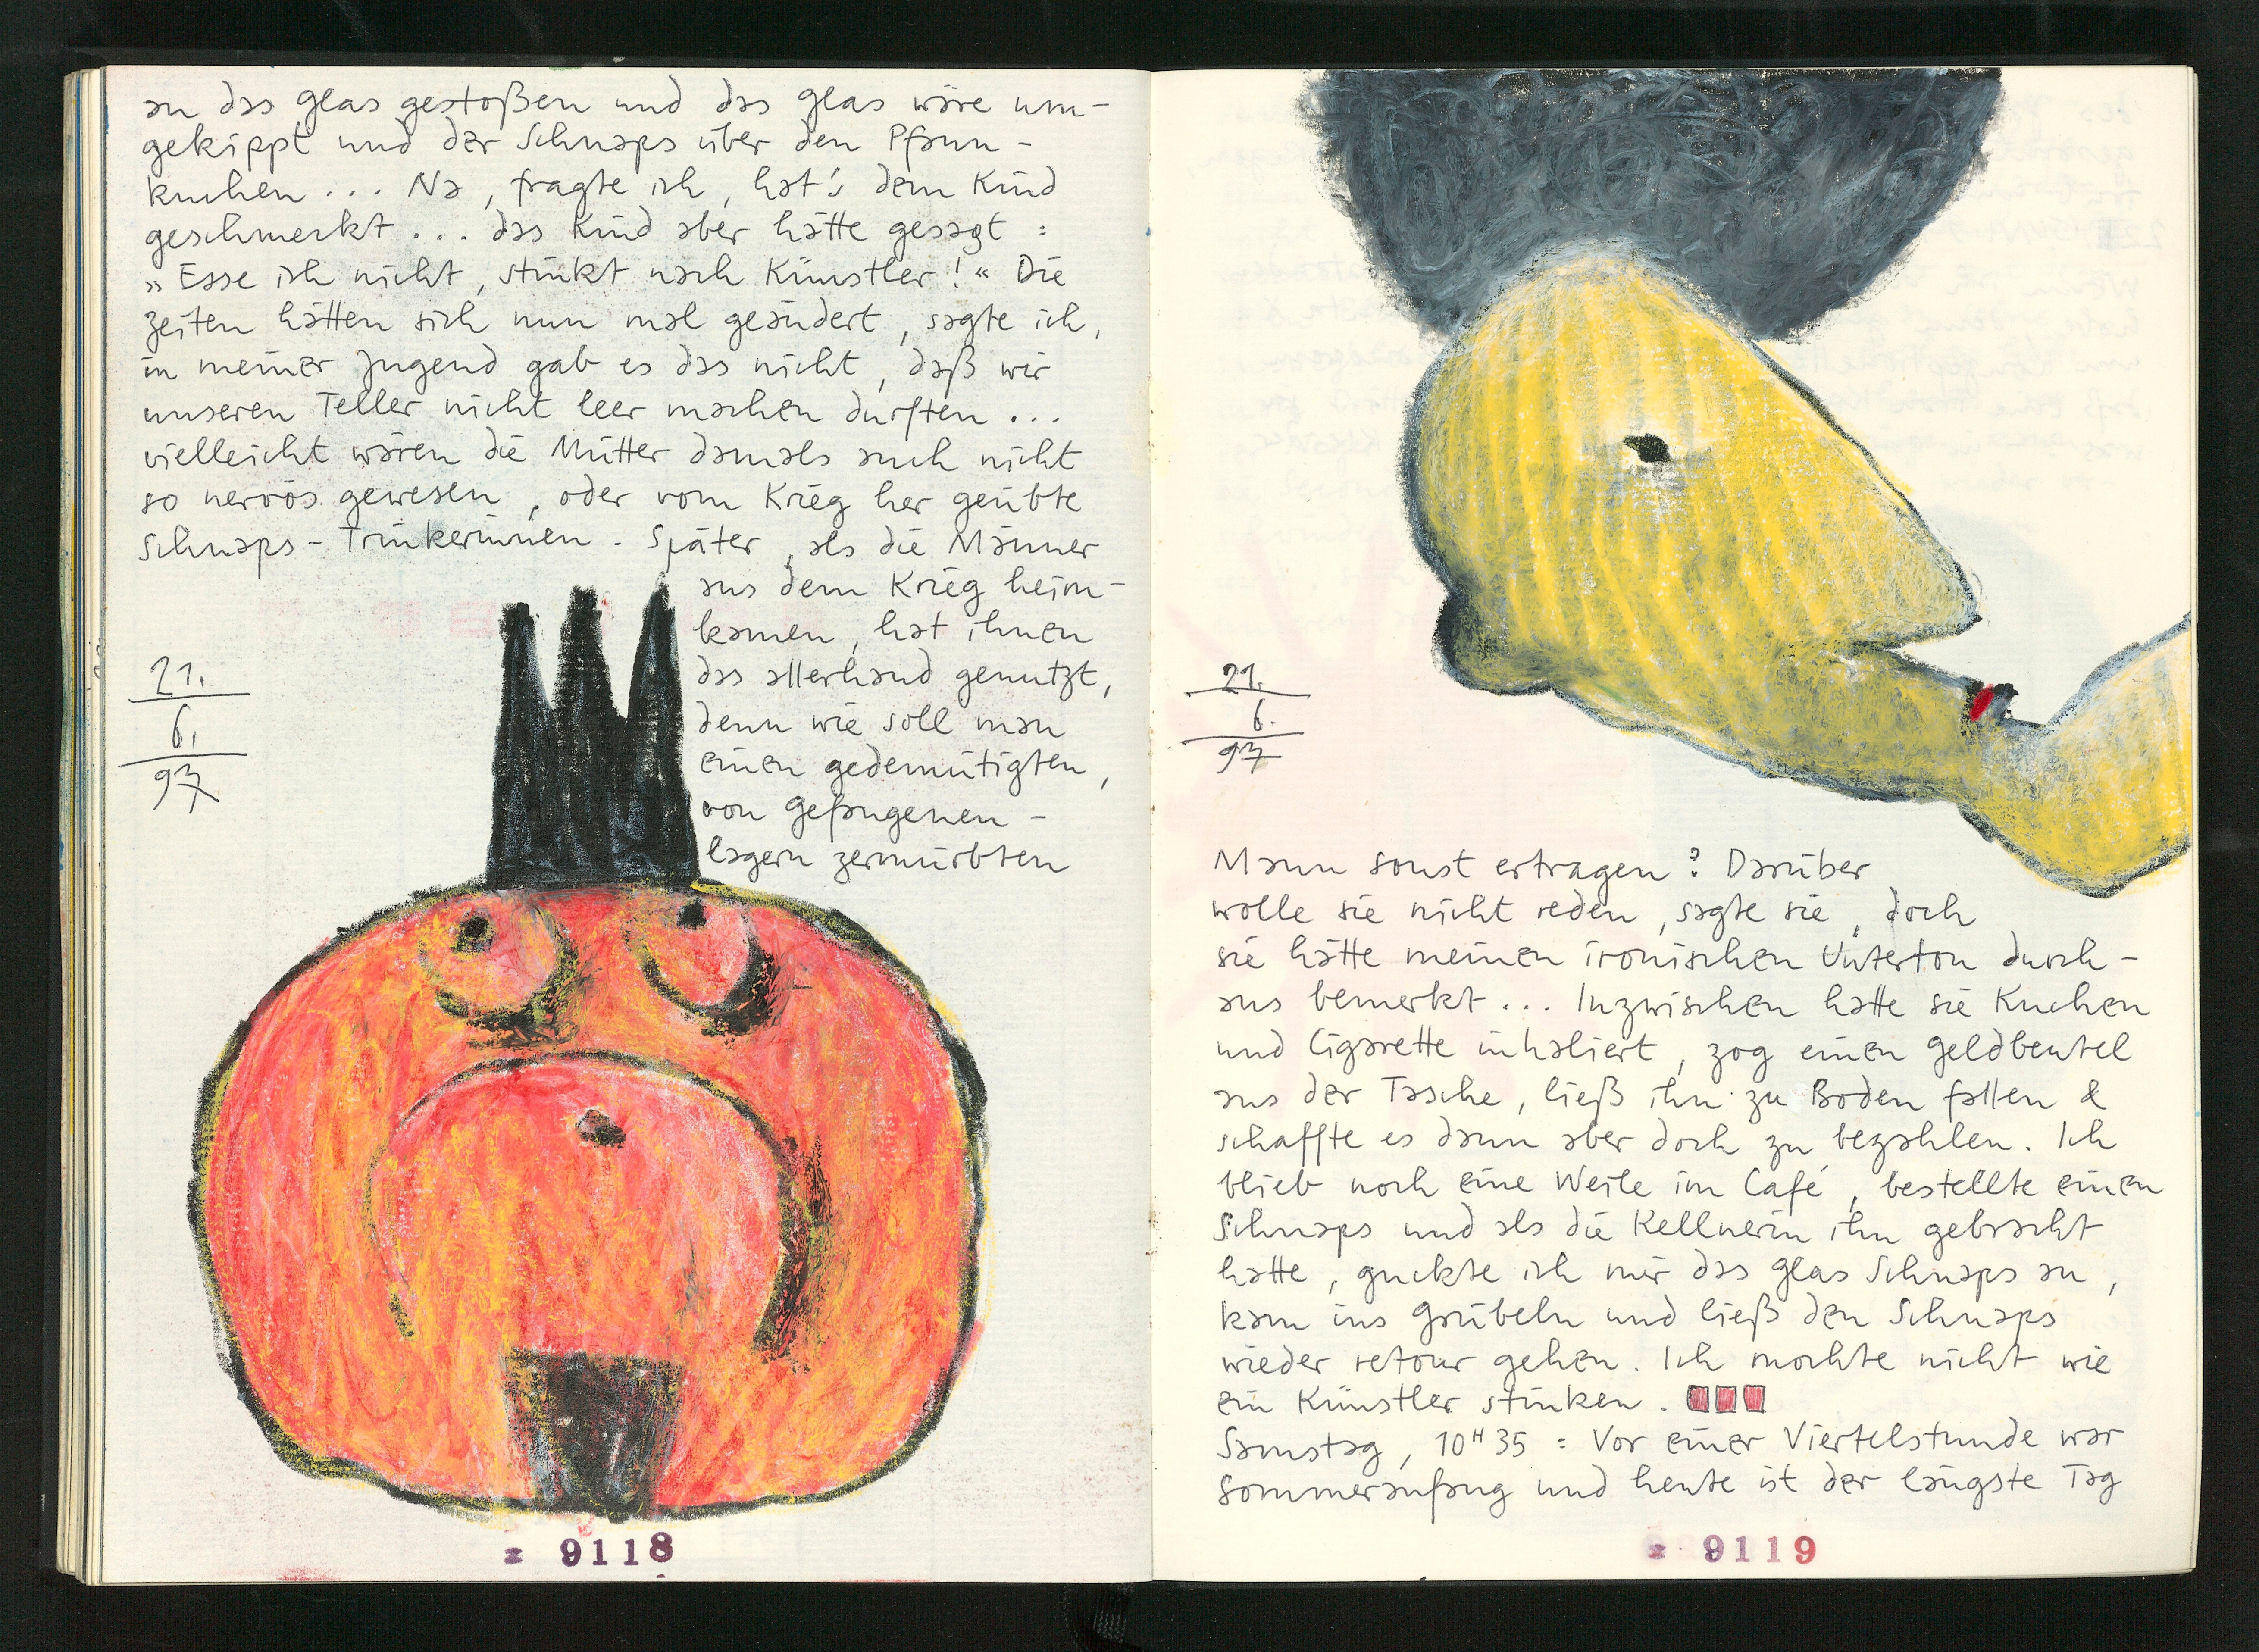 an das Glas gestoßen und das Glas wäre um-
gekippt und der Schnaps über den Pfann-
kuchen ... Na, fragte ich, hat's dem Kind
geschmeckt ... das Kind aber hätte gesagt :
„Esse ich nicht, stinkt nach Künstler!“ Die
Zeiten hätten sich nun mal geändert, sagte ich,
in meiner Jugend gab es das nicht, daß wir
unseren Teller nicht leer machen durften ...
vielleicht wären die Mütter damals auch nicht
so nervös gewesen, oder vom Krieg her geübte
Schnaps-Trinkerinnen. Später, als die Männer
aus dem Krieg heim-
kamen, hat ihnen
das allerhand genutzt,
denn wie soll man
einen gedemütigten,
von Gefangenen-
lagern zermürbten
21.
6.
97
9118
21.
6.
97
Mann sonst ertragen? Darüber
wolle sie nicht reden, sagte sie, doch
sie hätte meinen ironischen Unterton durch-
aus bemerkt ... Inzwischen hatte sie Kuchen
und Cigarette inhaliert, zog einen Geldbeutel
aus der Tasche, ließ ihn zu Boden fallen &
schaffte es dann aber doch zu bezahlen. Ich
blieb noch eine Weile im Café, bestellte einen
Schnaps und als die Kellnerin ihn gebracht
hatte, guckte ich mir das Glas Schnaps an,
kam ins Grübeln und ließ den Schnaps
wieder retour gehen. Ich mochte nicht wie
ein Künstler stinken.
Samstag, 10H35 : Vor einer Viertelstunde war
Sommeranfang und heute ist der längste Tag
9119